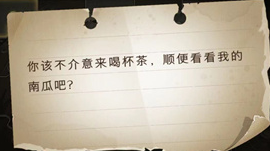 你该不介意来喝杯茶，顺便看看我的
南瓜吧？